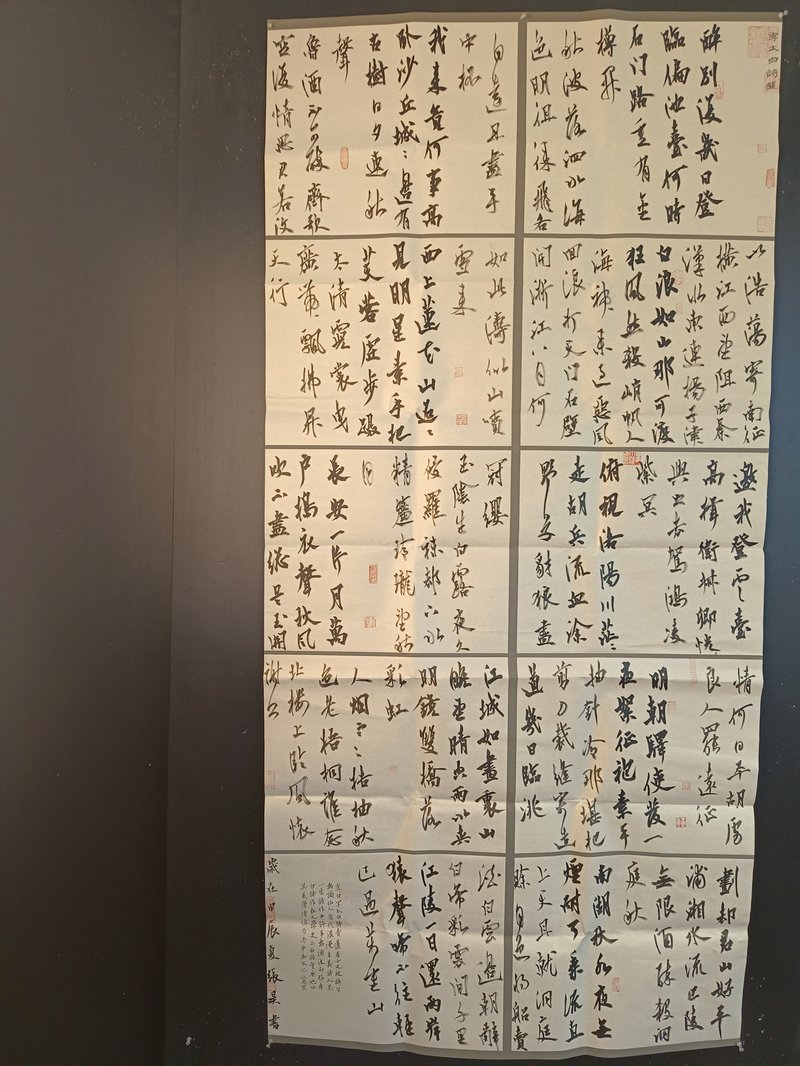 李太白詩選
醉別復幾日登
臨徧池臺何時
石門路重有金
樽開
秋波落泗水海
色明徂徠飛各
自遠且盡手
中杯
我來竟何事高
臥沙丘城〻邊有
古樹日夕連秋
聲
魯酒不可醉齊歌
空復情思君若汶
水浩蕩寄南征
橫江西望阻西秦
漢水東連揚子津
白浪如山那可渡
狂風愁殺峭帆人
海神來過惡風
回浪打天門石壁
開浙江八月何
如此濤似山噴
雪來
西上蓮花山迢〻
見明星素手把
芙蓉虛步躡
太清霓裳曳
廣帶飄拂昇
天行
邀我登雲臺
高揖衛叔卿恍〻
與之去駕鴻凌
紫冥
俯視洛陽川茫〻
走胡兵流血塗
野草豺狼盡
冠纓
玉階生白露夜久
侵羅襪却下水
精簾玲瓏望秋
月
長安一片月萬
戶搗衣聲秋風
吹不盡總是玉關
情何日平胡虜
良人罷遠征
明朝驛使發一
夜絮征袍素手
抽針冷那堪把
剪刀裁縫寄遠
道幾日臨洮
江城如畫裏山
曉望晴空兩水夾
明鏡雙橋落
彩虹
人烟寒橘柚秋
色老梧桐誰念
北樓上臨風懷
謝公
劃却君山好平
鋪湘水流巴陵
無限酒醉殺洞
庭秋
南湖秋水夜無
煙耐可乘流直
上天且就洞庭
賒月色將船買
酒白雲邊朝辭
白帝彩雲間千里
江陵一日還兩岸
猿聲啼不住輕
已過萬重山
歲在甲辰夏張昊書